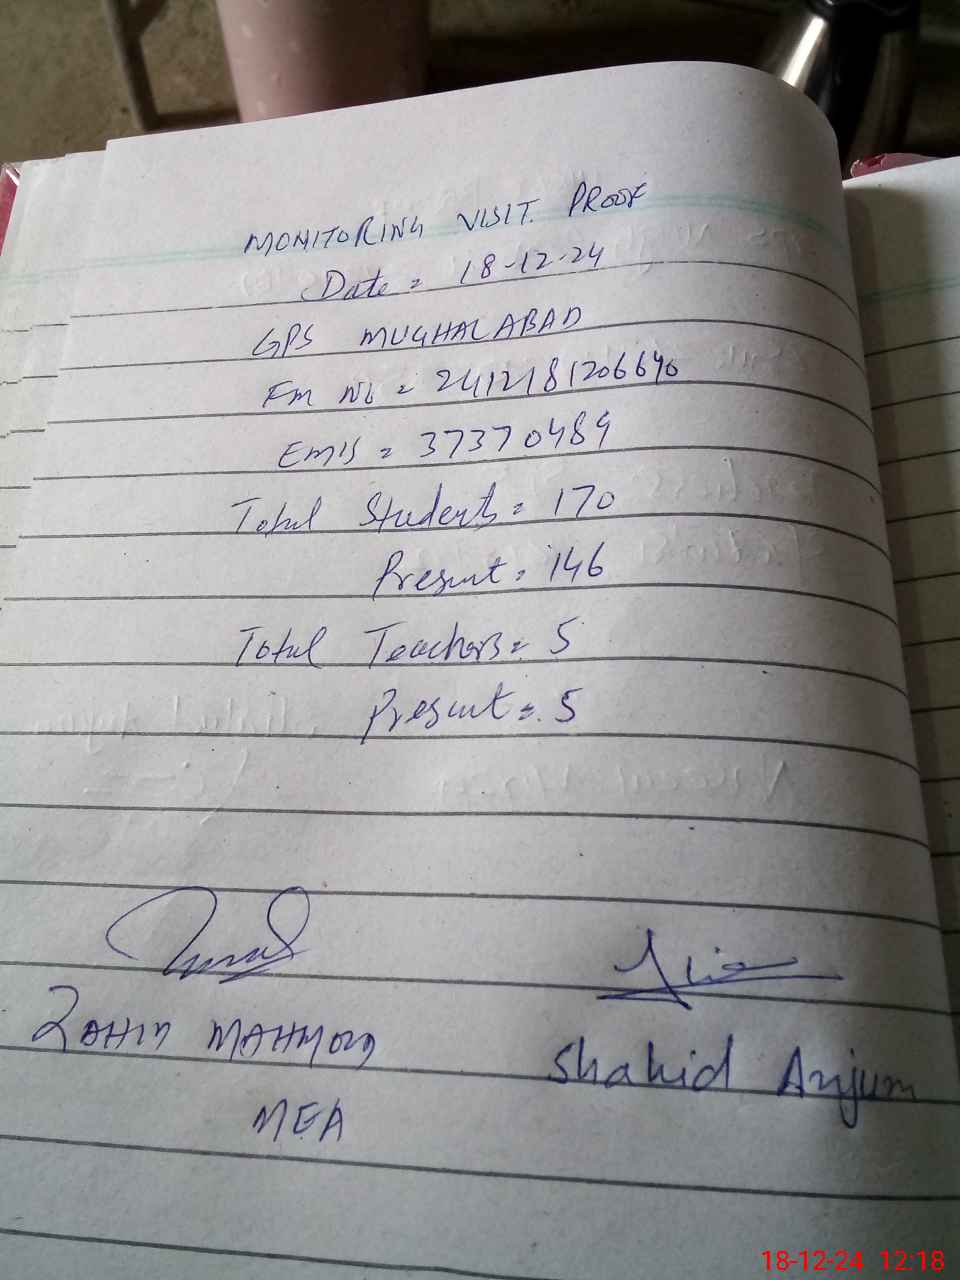 MONITORING VISIT. PROOF
Date = 18-12-24
GPS MUGHALABAD
Fm No = 2412181206640
EMIS = 37370489
Total Students = 170
Present = 146
Total Teachers = 5
Present = 5
ZAHID MAHMOOD
Shahid Anjum
MEA
18-12-24 12:18